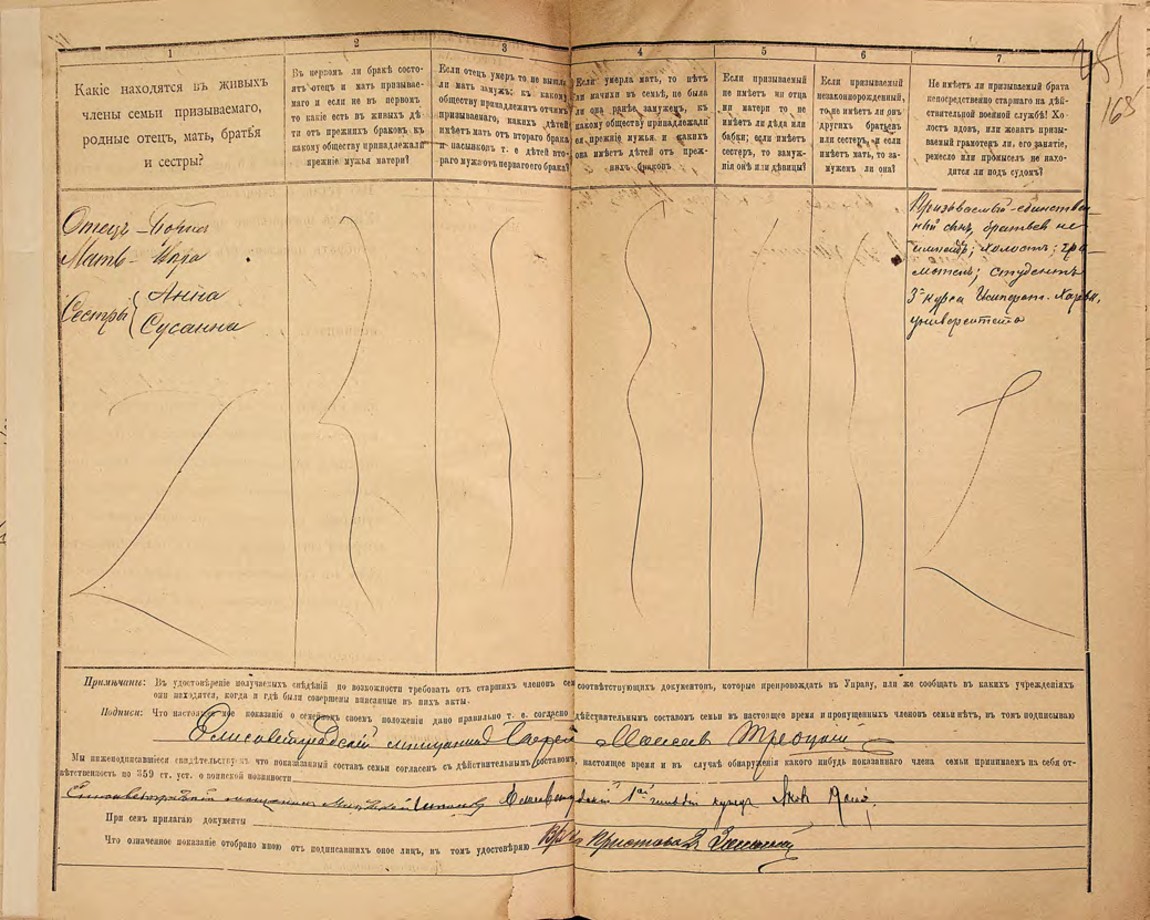 281
163
1
2
3
4
5
6
7
Какіе находятся въ живыхъ
члены семьи призываемаго,
родные отецъ, мать, братья
и сестры?
Въ первомъ ли бракѣ состо-
ятъ отецъ и мать призывае-
маго и если не въ первомъ
то какіе есть въ живыхъ дѣ-
ти отъ прежнихъ браковъ къ
какому обществу принадлежали
прежніе мужья матери?
Если отецъ умеръ то не вышла
ли мать замужъ; къ какому
обществу принадлежитъ отчимъ
призываемаго, какихъ дѣтей
имѣетъ мать отъ втораго брака
и пасынковъ т. е дѣтей вто-
раго мужа отъ перваго его брака?
Если умерла мать, то нѣтъ
ли мачихи въ семьѣ, не была
ли она ранѣе замужемъ, къ
какому обществу принадлежали
ея прежніе мужья и какихъ
она имѣетъ дѣтей отъ преж-
нихъ браковъ
Если призываемый
не имѣетъ ни отца
ни матери то не
имѣетъ ли дѣда или
бабки; если имѣетъ
сестеръ, то замуж-
нія онѣ или дѣвицы?
Если призываемый
незаконнорожденный,
то не имѣетъ ли онъ
другихъ братьевъ
или сестеръ, и если
имѣетъ мать, то за-
мужемъ ли она?
Не имѣетъ ли призываемый брата
непосредственно старшаго на дѣй-
ствительной военной службѣ! Хо-
лостъ вдовъ, или женатъ призы-
ваемый грамотенъ ли, его занятіе,
ремесло или промыселъ не нахо-
дится ли подъ судомъ?
Отецъ –
Мать –
Сестры { Анна
Сусанна
Призываемый – единствен-
ный сынъ, братьевъ не
имѣетъ; холостъ; гра-
мотенъ; студентъ
3го курса Императ. Харьк.
университета
Примѣчаніе: Въ удостовѣреніе получаемыхъ свѣдѣній по возможности требовать отъ старшихъ членовъ сем соотвѣтствующихъ документовъ, которые препровождать въ Управу, или же сообщать въ какихъ учрежденіяхъ
они находятся, когда и гдѣ были совершены вписанные въ нихъ акты.
Подписи: Что настоящее мое показаніе о семейномъ своемъ положеніи дано правильно т. е. согласно дѣйствительнымъ составомъ семьи въ настоящее время и пропущенныхъ членовъ семьи нѣтъ, въ томъ подписываю
Елисаветградскій мѣщанинъ Моисеевъ
Мы нижеподписавшіеся свидѣтельствуемъ что показанный составъ семьи согласенъ съ дѣйствительнымъ составомъ, настоящее время и въ случаѣ обнаруженія какого нибудь показаннаго члена семьи принимаемъ на себя от-
вѣтственность по 359 ст. уст. о воинской повинности
Елисаветградскій 1ой гильдіи купецъ Яковъ
При семъ прилагаю документы
Что означенное показаніе отобрано мною отъ подписавшихъ оное лицъ, въ томъ удостовѣряю Пристава